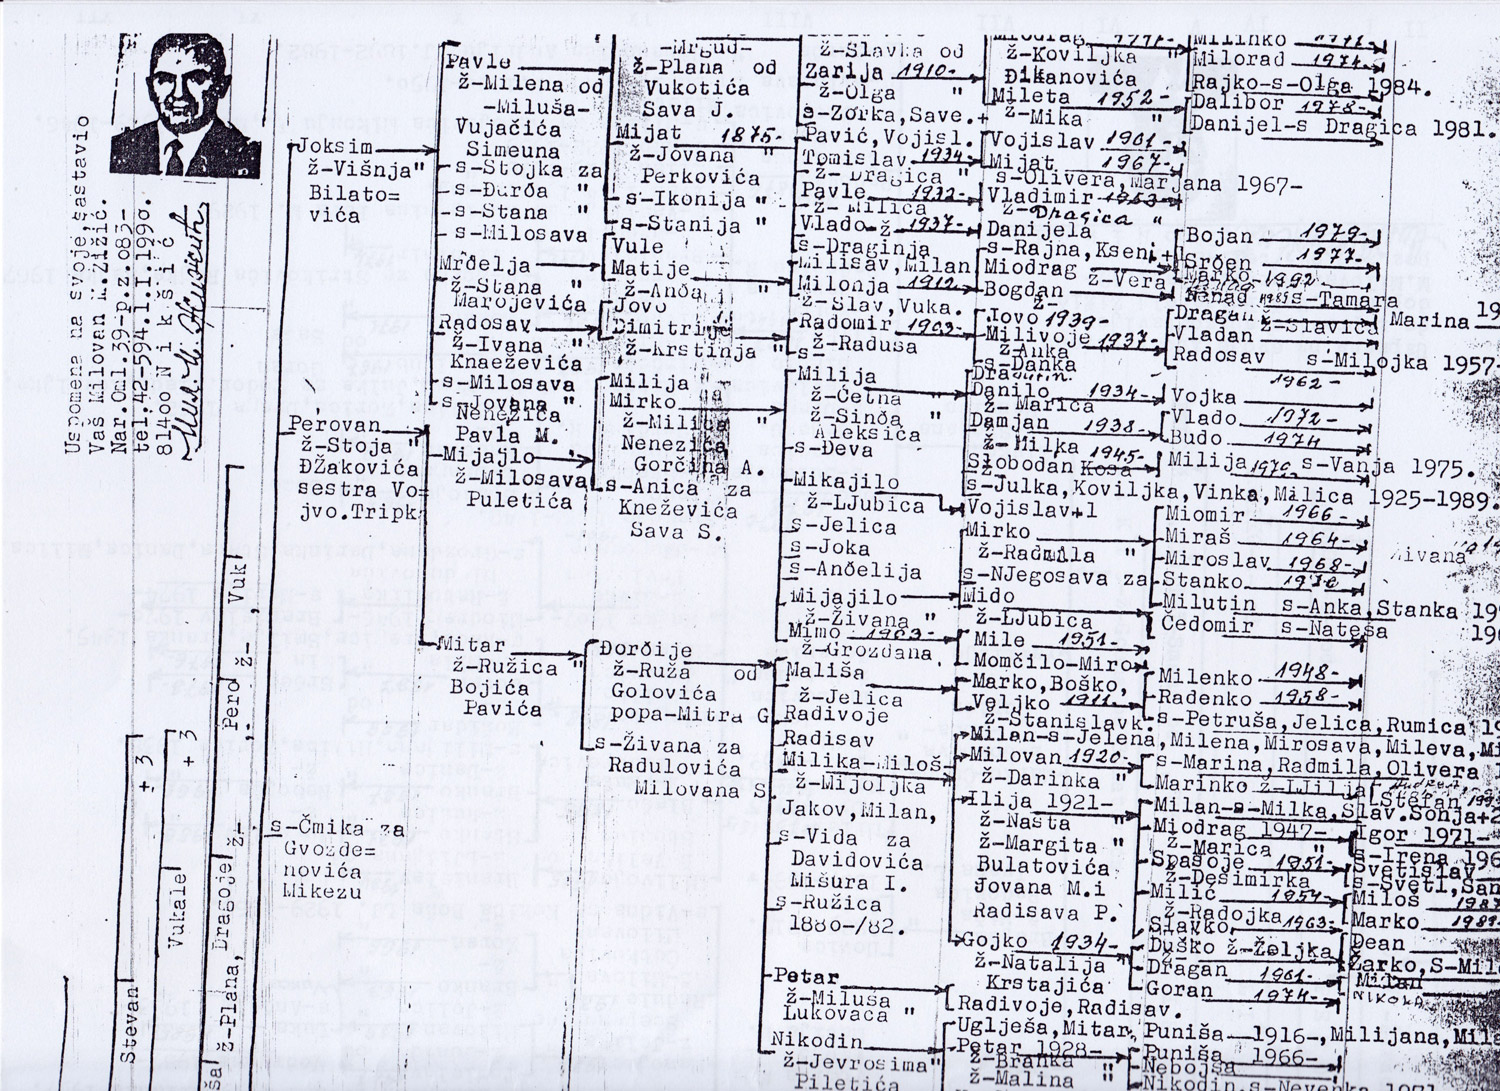 Uspomena na svoje,sastavio
Vaš Milovan M.Žižić.
Nar.Oml.39-p.z.o83-
tel.42.594.I.I.1990.
81400 N i k š i ć
Stevan
+ 3
Vukale
+ 3
ž-Plana, Dragoje
Pero ž-, Vuk
Joksim
ž-Višnja"
Bilato=
vića
Perovan
ž-Stoja "
ĐŽakovića
sestra Vo=
jvo.Tripk
s-Čmika za
Gvozde=
novića
Mikezu
Pavle
ž-Milena od
-Miluša-
Vujačića
Simeuna
s-Stojka za
s-Đurđa "
s-Stana "
s-Milosava
Mrđelja
ž-Stana "
Marojevića
Radosav
ž-Ivana "
Knaeževića
s-Milosava
s-Jovana "
Nenezića
Pavla M.
Mijajlo
ž-Milosava
Puletića
Mitar
ž-Ružica "
Bojića
Pavića
-Mrguđ-
ž-Plana od
Vukotića
Sava J.
Mijat 1875-
ž-Jovana "
Perkovića
s-Ikonija "
s-Stanija "
Vule
Matije
ž-Anđa
Jovo
Dimitrije
ž-Krstinja "
Milija
Mirko
ž-Milica "
Nenezića
Gorčina A.
s-Anica za
Kneževića
Sava S.
Đorđije
ž-Ruža od
Golovića
popa-Mitra G
s-Živana za
Radulovića
Milovana S
ž-Slavka od
Zarija 1910-
ž-Olga "
s-Zorka,Save.
Pavić,Vojisl.
Tomislav 1934-
ž-Dragica "
Pavle 1932-
ž-Milica
Vlado-ž 1937-
s-Draginja
Milisav,Milan
Milonja 1912-
ž-Slav,Vuka.
Radomir 1903-
ž-Raduša
s-
Milija
ž-Četna "
ž-Sinđa "
Aleksića
s-Đeva
Mikajilo
ž-LJubica
s-Jelica
s-Joka
s-Anđelija
Mijajilo
ž-Živana "
Mimo 1903-
ž-Grozdana
Mališa
ž-Jelica
Radivoje
Radisav
Milika-Miloš
ž-Mijoljka
Jakov,Milan,
s-Vida za
Davidovića
Mišura I.
s-Ružica
1880-/82.
Petar
ž-Miluša
Lukovaca "
Nikodin
ž-Jevrosima"
Piletića
ž-Koviljka
Đikanovića
Mileta 1952-
ž-Mika "
Vojislav 1961-
Mijat 1967-
s-Olivera,Marjana 1967-
Vladimir 1963-
ž-Dragica "
Danijela
s-Rajna,Kseni+1
Miodrag ž-Vera
Bogdan
ž-
Jovo 1939-
Milivoje 1937-
ž-Anka
s-Danka
Dragutin
Danilo 1934-
ž-Marica
Damjan 1938-
ž-Milka 1945-
Slobodan Kosa
s-Julka,Koviljka,Vinka,Milica 1925-1989.
Vojislav+1
Mirko
ž-Radmila "
s-NJegosava za
Mido
ž-LJubica
Mile 1951-
Momčilo-Miro
Marko,Boško,
Veljko 1911-
ž-Stanislavk
Milan-s-Jelena, Milena,Mirosava,Mileva,Mi
Milovan 1920-
ž-Darinka "
Ilija 1921-
ž-Našta
ž-Margita "
Bulatovića
Jovana M.i
Radisava P.
Gojko 1934-
ž-Natalija
Krstajića
Radivoje,Radisav.
Uglješa,Mitar.
Petar 1928-
ž-Branka "
ž-Malina "
Milinko
Milorad 1974-
Rajko-s-Olga 1984.
Dalibor 1978-
Danijel-s Dragica 1981.
Bojan 1979-
Srđen 1977-
Marko 1992-
Nenad s-Tamara
Dragan ž-Slavica
Marina 19
Vladan
Radosav s-Milojka 1957-
1962-
Vojka
Vlado 1972-
Budo 1974
Milija 1970 s-Vanja 1975.
Miomir 1966-
Miraš 1964-
Miroslav 1968-
Stanko
Milutin s-Anka,Stanka 19
Čedomir s-Nateša
Milenko 1948-
Radenko 1958-
s-Petruša,Jelica,Rumica 19
s-Marina,Radmila,Olivera
Marinko ž-LJilja
Stefan
Milan-s-Milka,Slav.Sonja+2
Miodrag 1947-
ž-Marica "
Spasoje 1951-
ž-Desimirka
Milić 1954-
ž-Radojka
Slavko 1963-
Duško ž-Željka
Dragan 1961-
Goran 1974-
Puniša 1916-,Milijana,Mila
Puniša 1966-
Nebojša
Igor 1971-
s-Irena 196
Svetislav
s-Svetl,San
Miloš 1987
Marko 1989
Dean
Žarko,S-Mil
Milan
NIKOLA